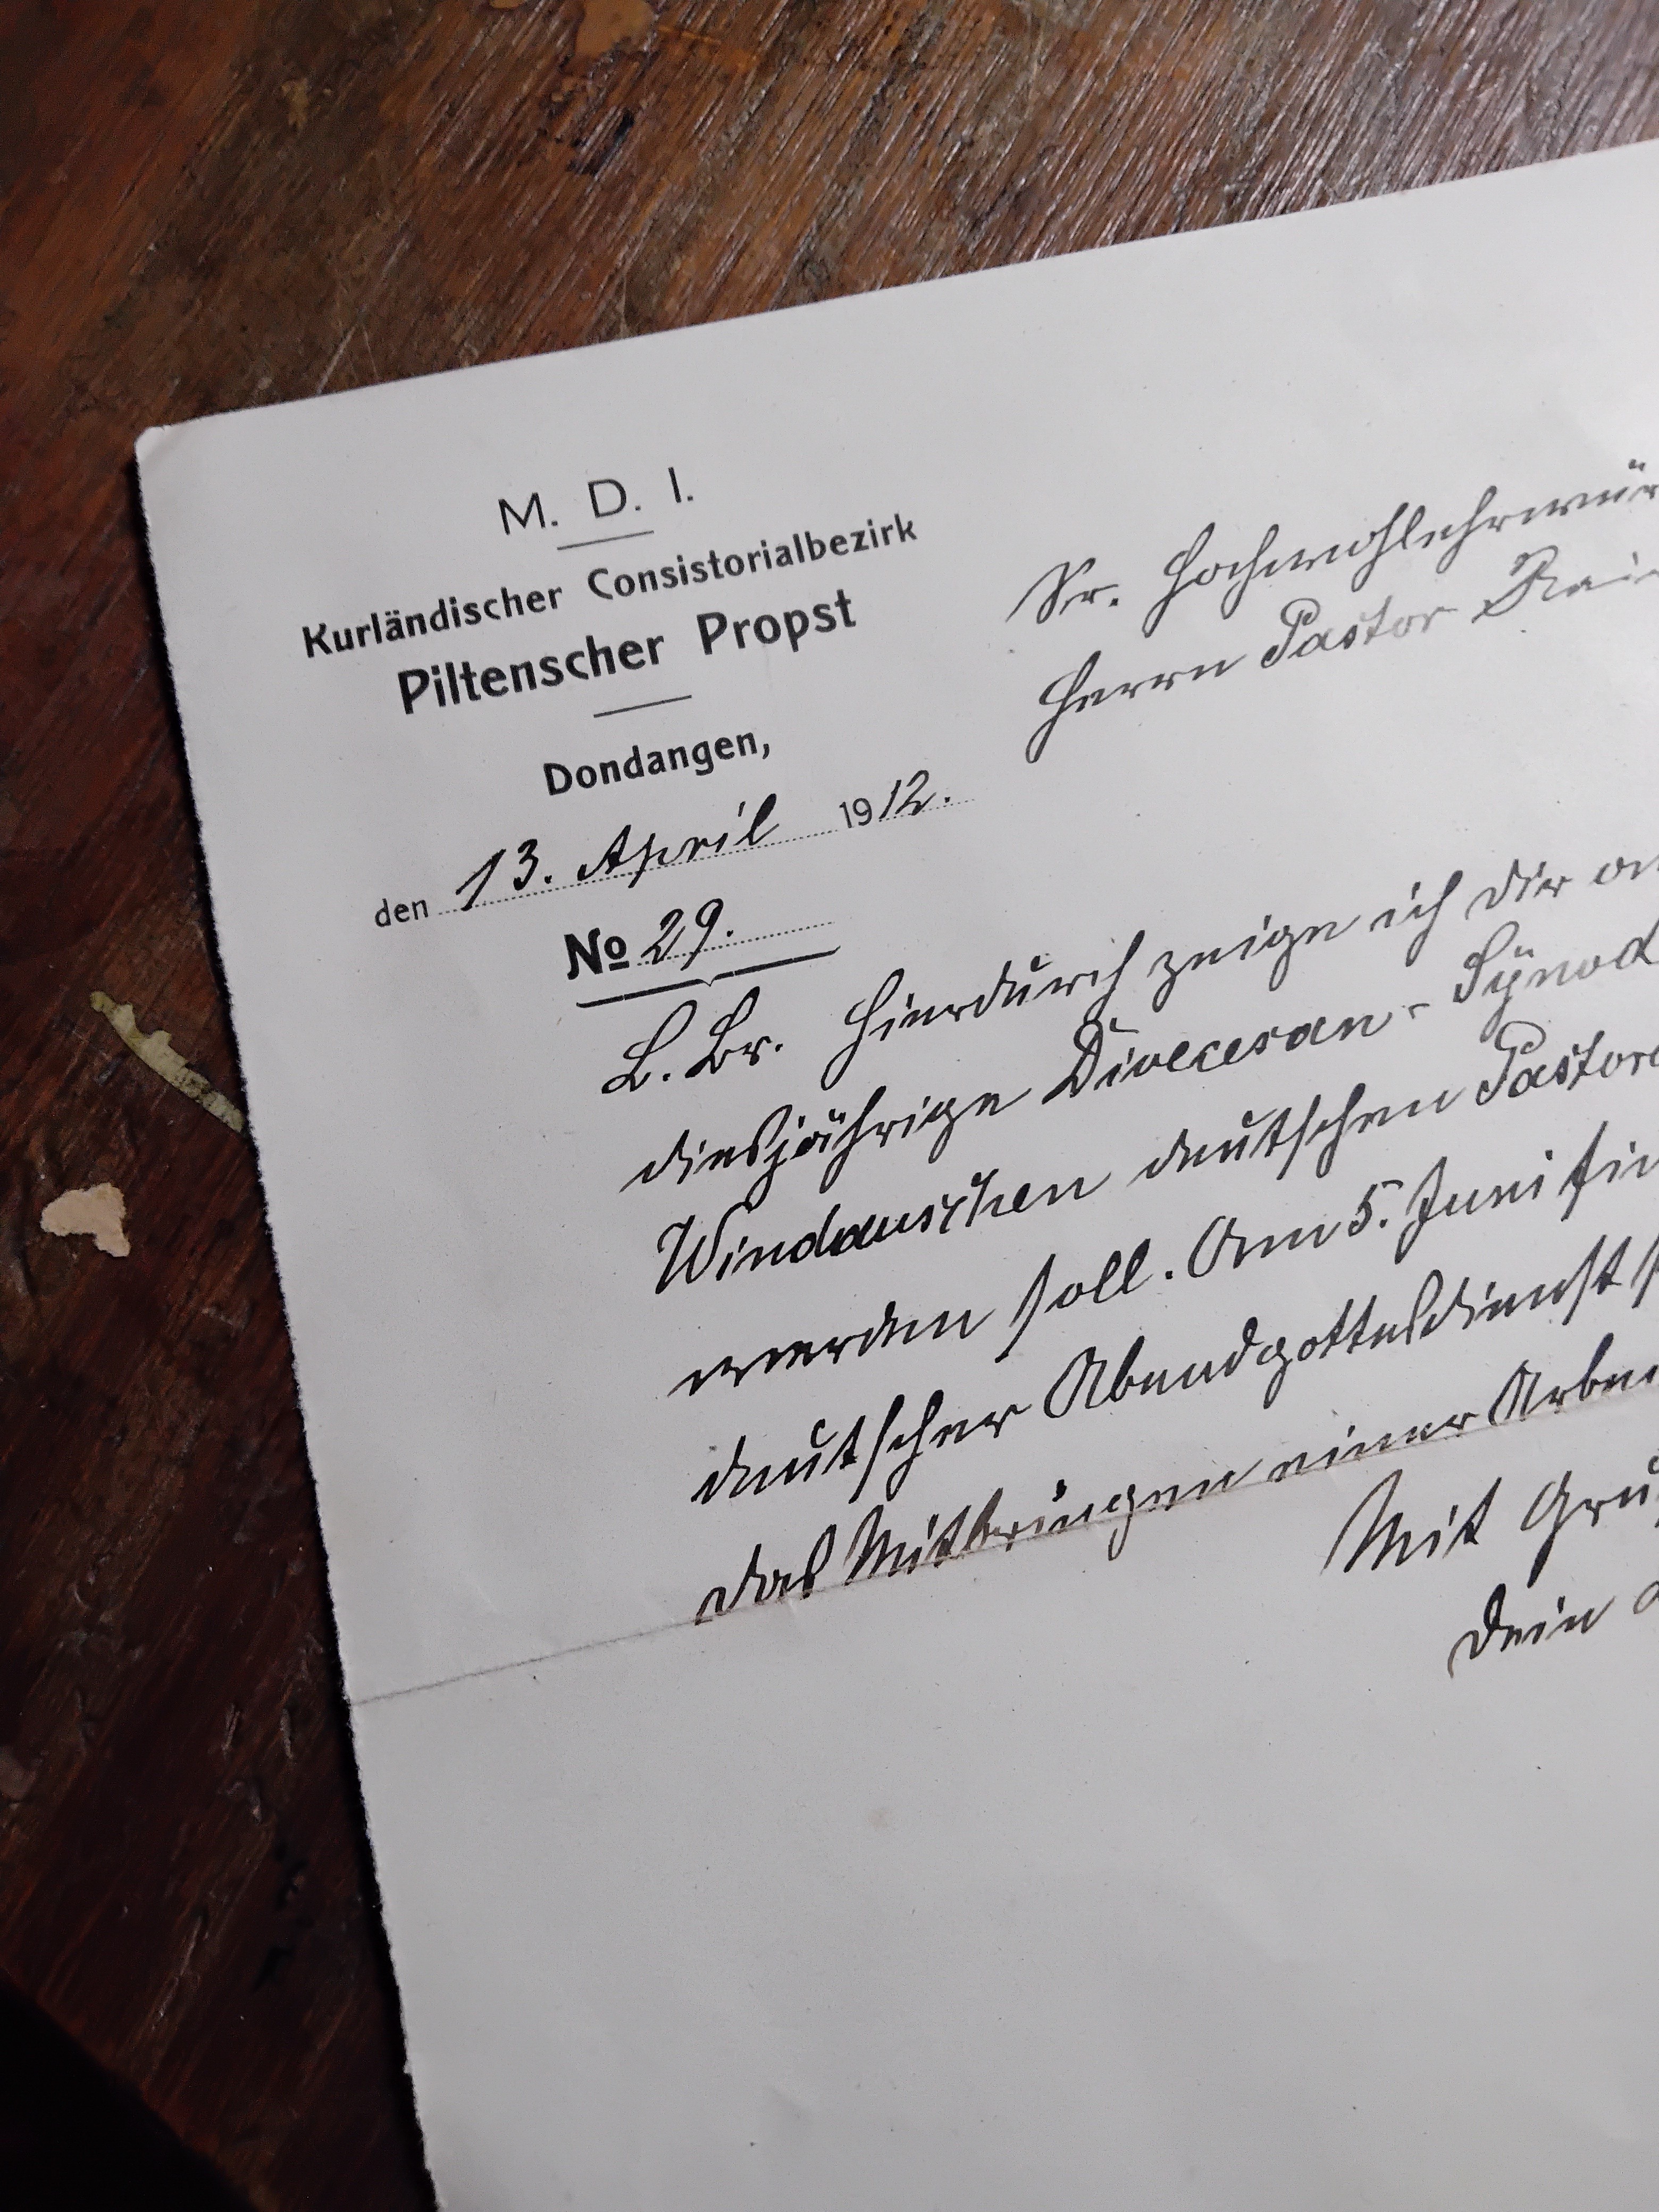 M. D. I.
Kurländischer Consistorialbezirk
Piltenscher Propst
Dondangen,
den 13. April 1912.
No 29.
Sr. Hochwohlehrwür
Herrn Pastor Rai
L. Br. Hierdurch zeige ich Dir an
diesjährige Dioecesan-Synod
Windauschen deutschen Pastora
werden soll. Am 5. Juni fin
deutscher Abendgottesdienst
das Mitbringen einer Arbei
Mit Gru
Dein